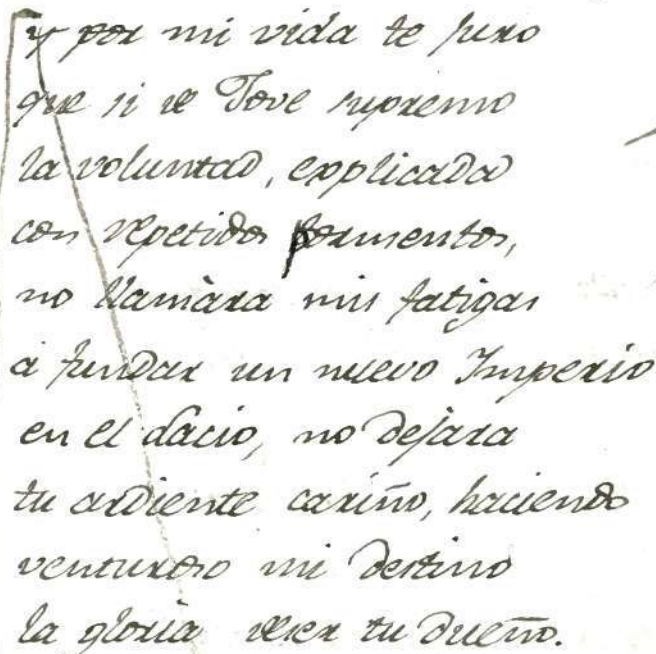 y por mi vida te juro
que si de Jove supremo
la voluntad, explicada
con repetidos tormentos,
no llamàra mis fatigas
à fundar un nuevo Imperio
en el Lacio, no dejara
tu ardiente cariño, haciendo
venturoso mi destino
la gloria deser tu dueño.